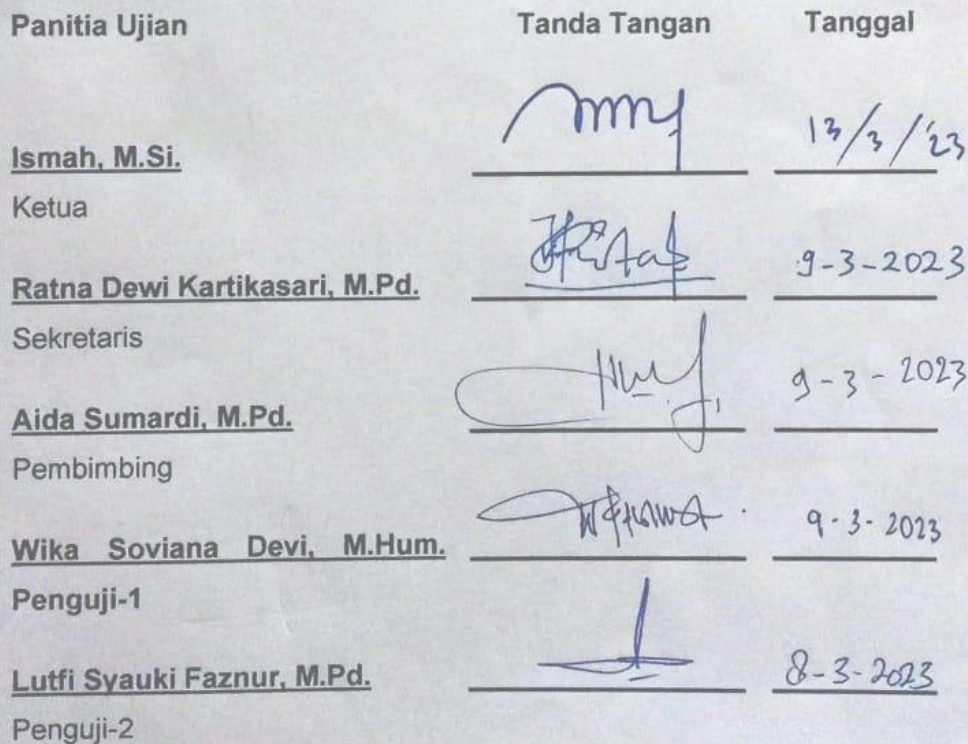 Panitia Ujian Tanda Tangan Tanggal
Ismah, M.Si. 13/3/'23
Ketua
Ratna Dewi Kartikasari, M.Pd. 9-3-2023
Sekretaris
Aida Sumardi, M.Pd. 9-3-2023
Pembimbing
Wika Soviana Devi, M.Hum. 9-3-2023
Penguji-1
Lutfi Syauki Faznur, M.Pd. 8-3-2023
Penguji-2